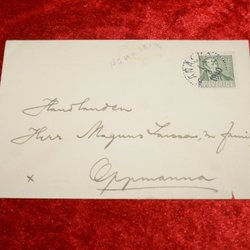 Handlanden
Herr Magnus Larsson, m famil
Oppmanna
x